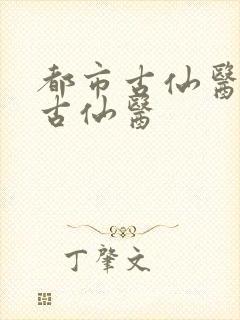 都市古仙醫
古仙醫
丁肇文